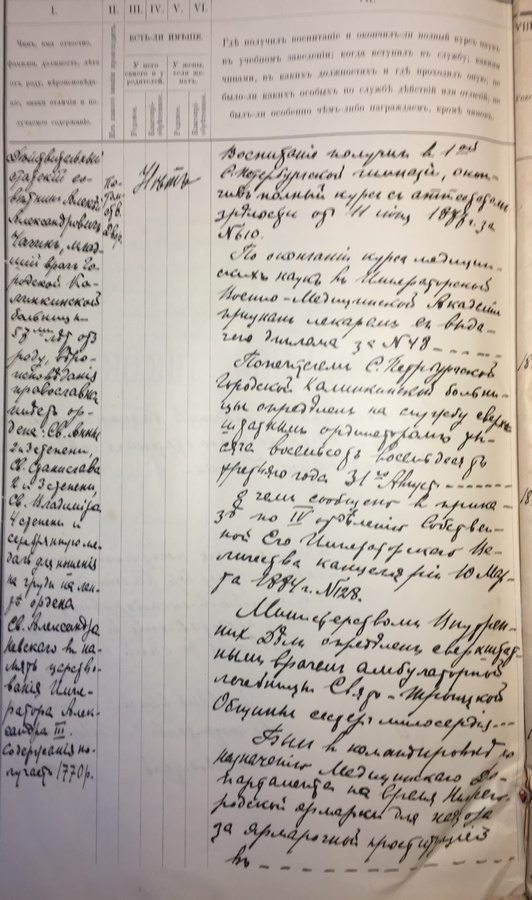 I.
II.
III.
IV.
V.
VI.
Чинъ, имя, отчество,
фамилія, должность, лѣта
отъ роду, вѣроисповѣда-
ніе, знаки отличія и по-
лучаемое содержаніе.
Изъ какого званія происходитъ.
ЕСТЬ-ЛИ ИМѢНІЕ.
У него самого и у родителей.
У жены, если женатъ.
Родовое.
Благопріобрѣтенное.
Родовое.
Благопріобрѣтенное.
Гдѣ получилъ воспитаніе и окончилъ-ли полный курсъ наукъ
въ учебномъ заведеніи; когда вступилъ въ службу; какими
чинами, въ какихъ должностяхъ и гдѣ проходилъ оную; не
было-ли какихъ особыхъ по службѣ дѣяній или отличій; не
былъ-ли особенно чѣмъ-либо награждаемъ, кромѣ чиновъ.
Дѣйствительный
статскій со-
вѣтникъ Алекс.
Александровичъ
млад-
шій врачъ Го-
родской Ка-
линкинской
больницы
57 лѣтъ отъ
роду, вѣро-
исповѣданія
православна
имѣетъ ор-
дена: Св. Анны
2 и 3 степени,
Св. Станислава
2 и 3 степени,
Св. Владиміра
4 степени и
серебряную ме-
даль для ношенія
на груди на лен-
тѣ ордена
Св. Александра
Невскаго въ па-
мять царство-
ванія Импе-
ратора Алек-
сандра III.
Содержанія по-
лучаетъ 1770 р.
По-
том.
двор.
Нѣтъ
Воспитаніе получилъ въ 1ой
С.Петербургской гимназіи, окон-
чивъ полный курсъ съ аттестатомъ
зрѣлости отъ 11 іюня за
№10.
По окончаніи курса медицин-
скихъ наукъ въ Императорской
Военно-Медицинской Академіи
признанъ лекаремъ съ выда-
чею диплома за №48
Попечителемъ С.Петербургской
Городской Калинкинской больни-
цы опредѣленъ на службу сверх-
штатнымъ ординаторомъ ты-
сяча восемьсотъ восемьдесятъ
третьяго года 31го Августа
О чемъ сообщено въ прика-
зѣ по IV отдѣленію Собствен-
ной Его Императорскаго Ве-
личества канцеляріи 10 Мар-
та 1884 г. №128.
Министерствомъ Внутрен-
нихъ Дѣлъ опредѣленъ сверхштат-
нымъ врачемъ амбулаторной
лечебницы Свято-Троицкой
Общины сестеръ милосердія
Былъ въ командировкѣ по
назначенію Медицинскаго Де-
партамента на время Нижего-
родской ярмарки для надзора
за ярмарочной проституціей
въ